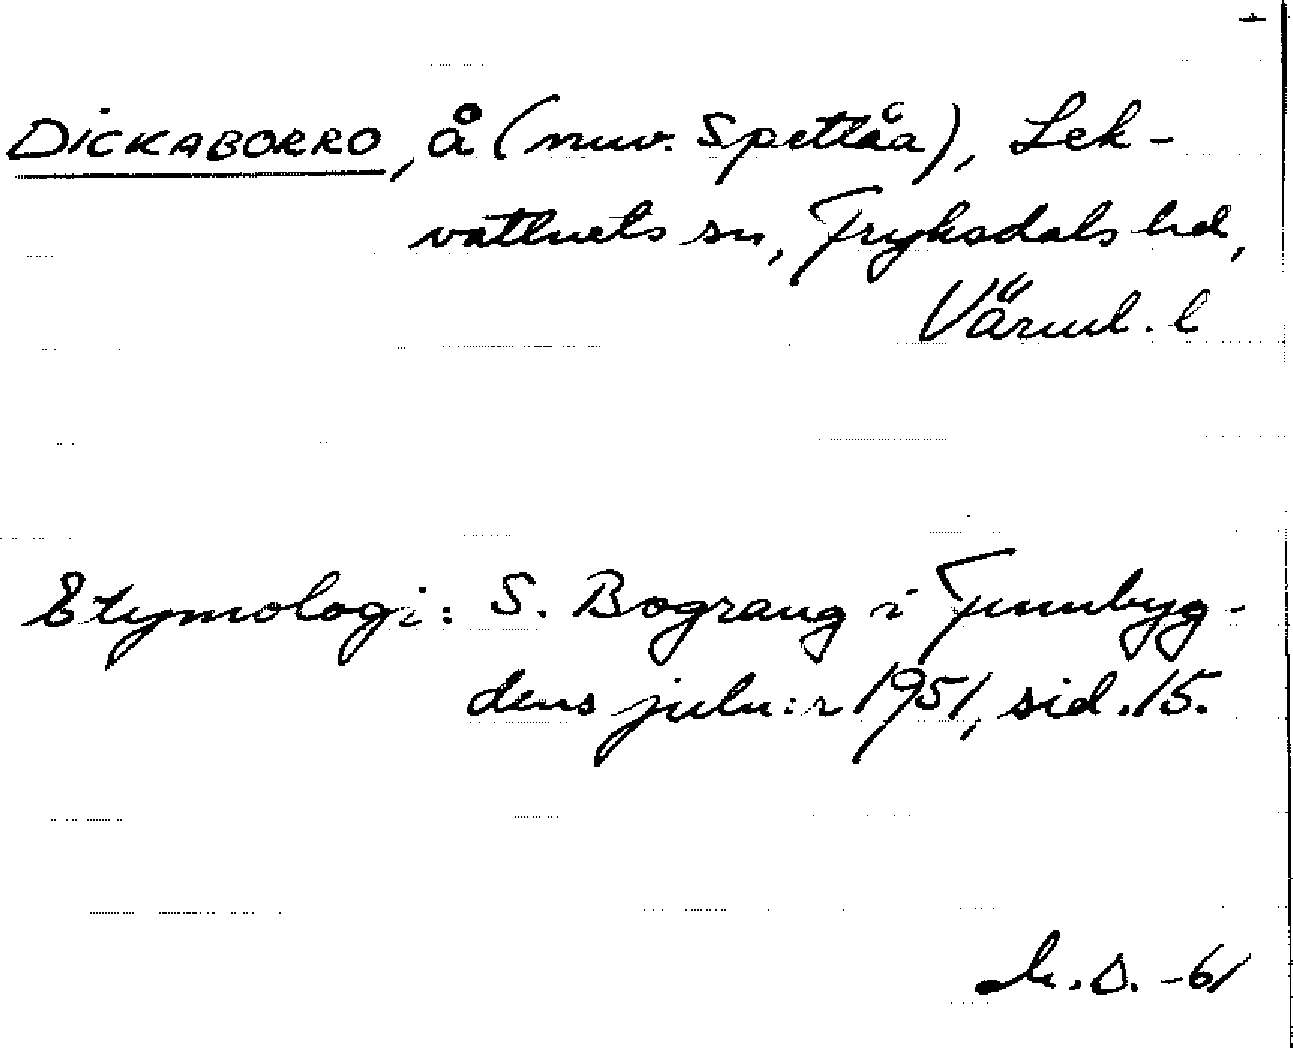 DICKABORRO, å (nuv. Spettåa), Lek-
vattnets sn, Fryksdals hd,
Värml. l
Etymologi: S. Bograng i Finnbyg-
dens juln:r 1951, sid. 15.
D. -61